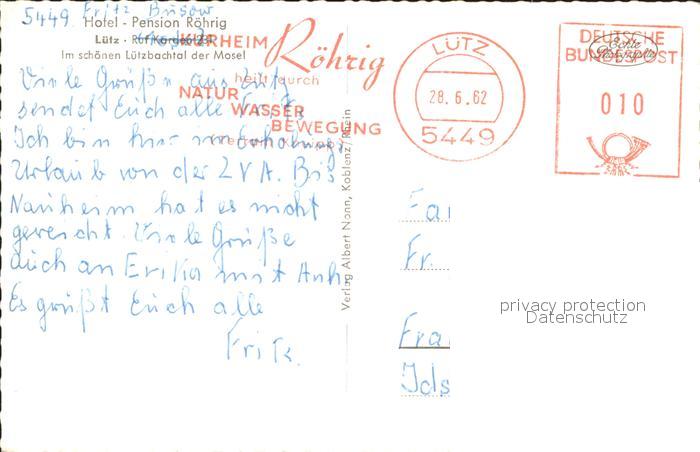 5449 Fritz Busow
Hotel - Pension Röhrig
Lütz · Ruf Karden 231
Im schönen Lützbachtal der Mosel
KURHEIM
Röhrig
heilt durch
NATUR
WASSER
BEWEGUNG
LÜTZ
28.6.62
5449
DEUTSCHE
BUNDESPOST
010
Echte
Viele Grüße aus Lütz
sendet Euch alle Fritz.
Ich bin hier im Erholungs
Urlaub von der LVA. Bis
Nauheim hat es nicht
gereicht. Viele Grüße
auch an Erika mit Anh.
Es grüßt Euch alle
Fritz.
Verlag Albert Nonn, Koblenz/Rhein
Fa
Fr.
Fra
Ids
privacy protection
Datenschutz